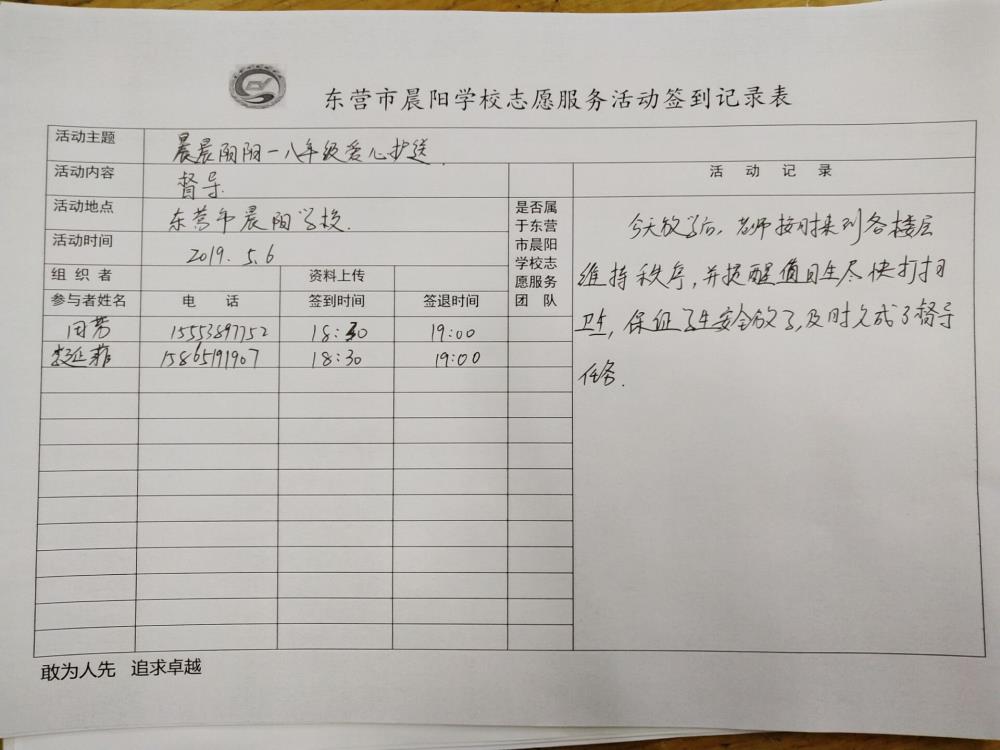 东营市晨阳学校志愿服务活动签到记录表
活动主题 晨晨阳阳一八年级爱心护送
活动内容 督导.
活动地点 东营市晨阳学校.
活动时间 2019.5.6
组织者 资料上传
参与者姓名 电话 签到时间 签退时间
是否属
于东营
市晨阳
学校志
愿服务
团队
田芳 15553897752 18:30 19:00
15865191907 18:30 19:00
活动记录
今天放学后,老师按时来到各楼层
维持秩序,并提醒值日生尽快打扫
卫生,保证了学生安全放学,及时完成了督导
任务.
敢为人先 追求卓越